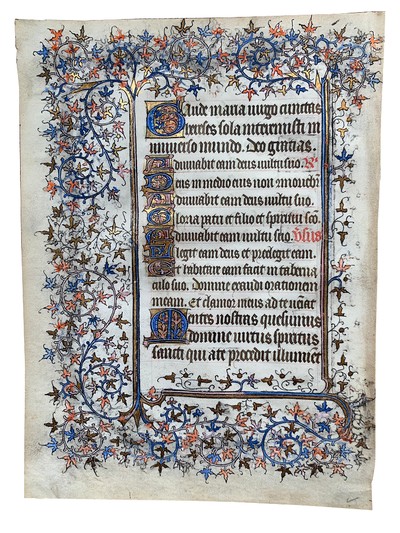 Gaude maria virgo cunctas
hereses sola interemisti in
universo mundo. Deo gratias.
Adiuvabit eam deus vultu suo. R
Deus in medio eius non movebit.
Adiuvabit eam deus vultu suo.
Gloria patri et filio et spiritui sco.
Adiuvabit eam vultu suo. Vsus
Elegit eam deus et preelegit eam.
Et habitare eam facit in taberna
culo suo. Domine exaudi orationem
meam. Et clamor meus ad te veniat
Mentes nostras quesumus
domine virtus spiritus
sancti qui a te procedit illuminet